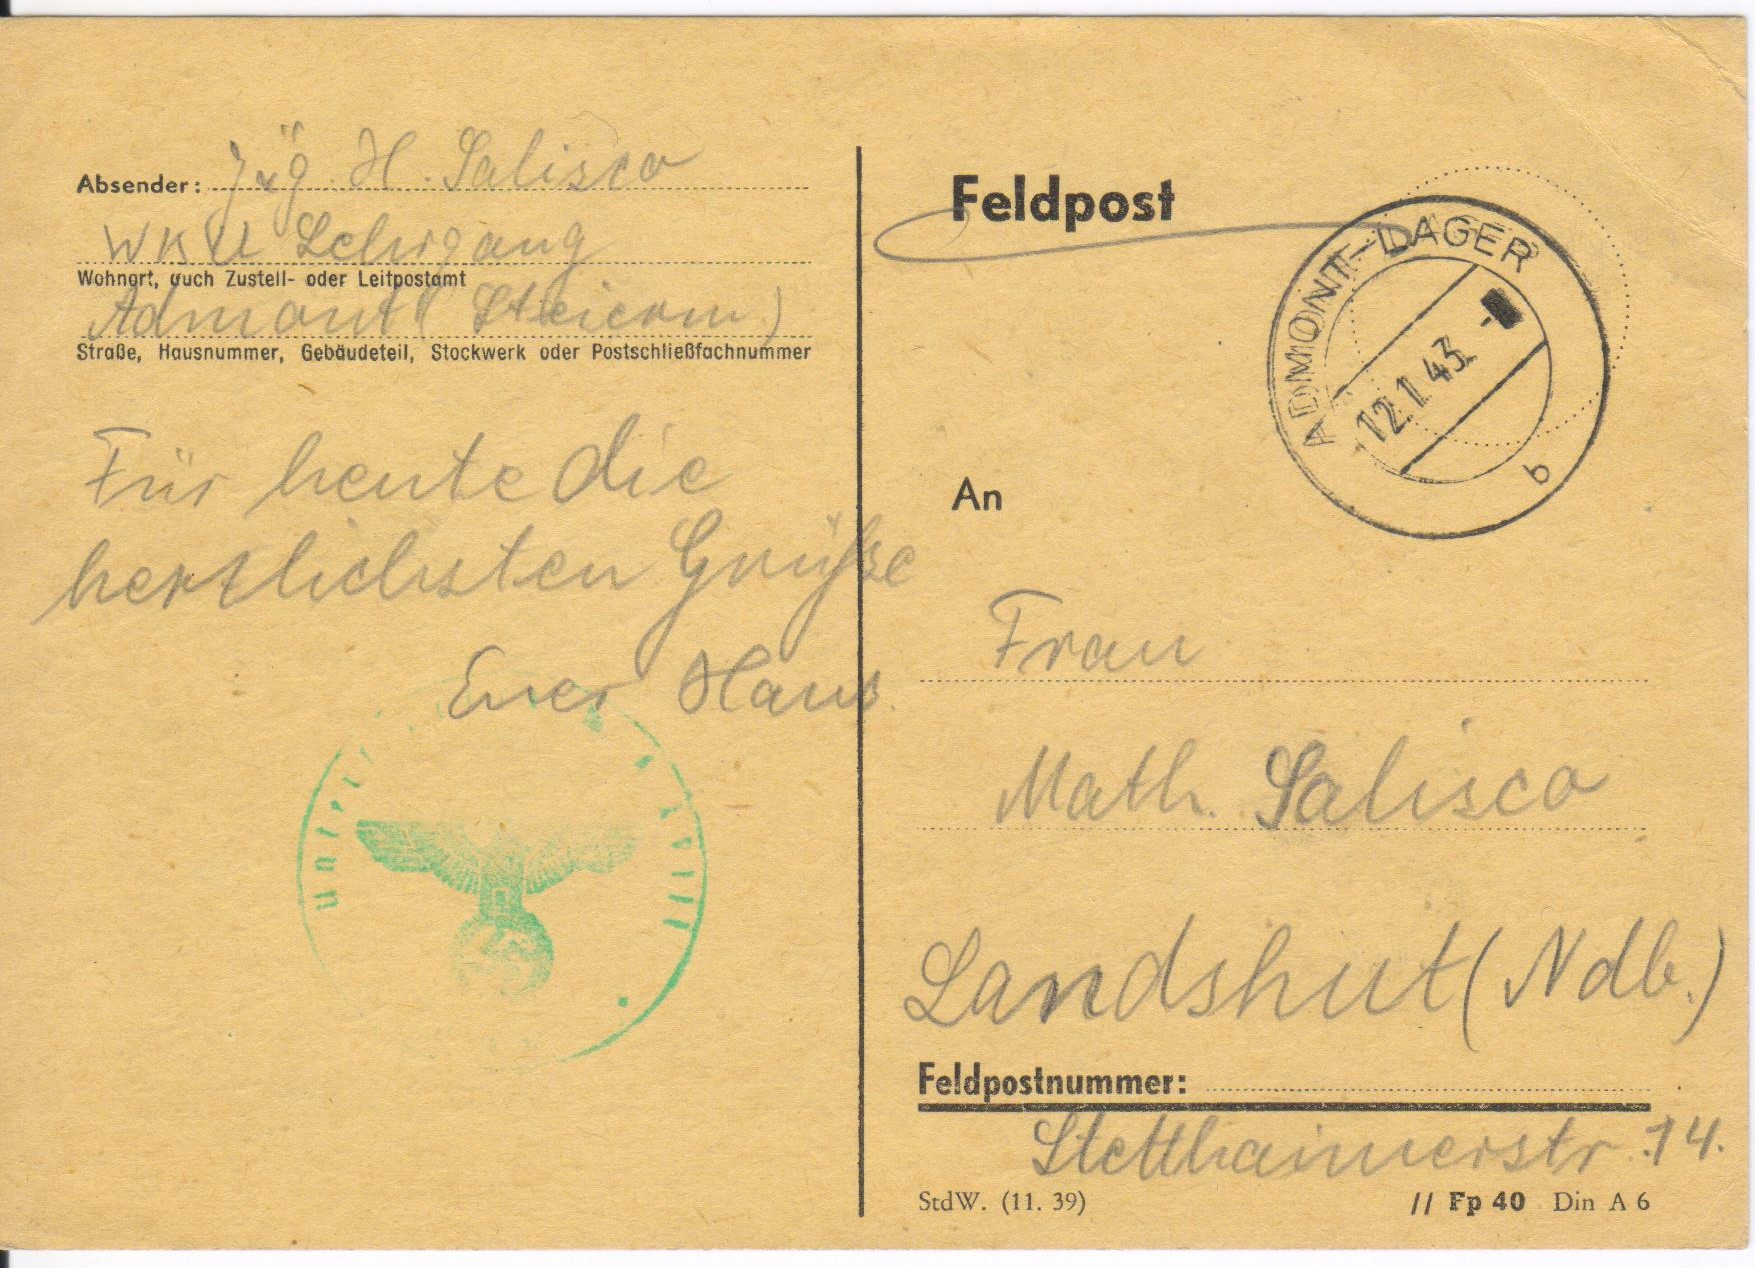 Absender: Jäg. H. Salisco
WKU Lehrgang
Wohnort, auch Zustell- oder Leitpostamt
Admont (Steierm)
Straße, Hausnummer, Gebäudeteil, Stockwerk oder Postschließfachnummer
Für heute die
herzlichsten Grüße
Euer Hans.
Feldpost
ADMONT-LAGER
12.1.43.-
b
An
Frau
Math. Salisco
Landshut (Ndb.)
Feldpostnummer:
Stetthaimerstr. 14.
StdW. (11. 39)
// Fp 40 Din A 6